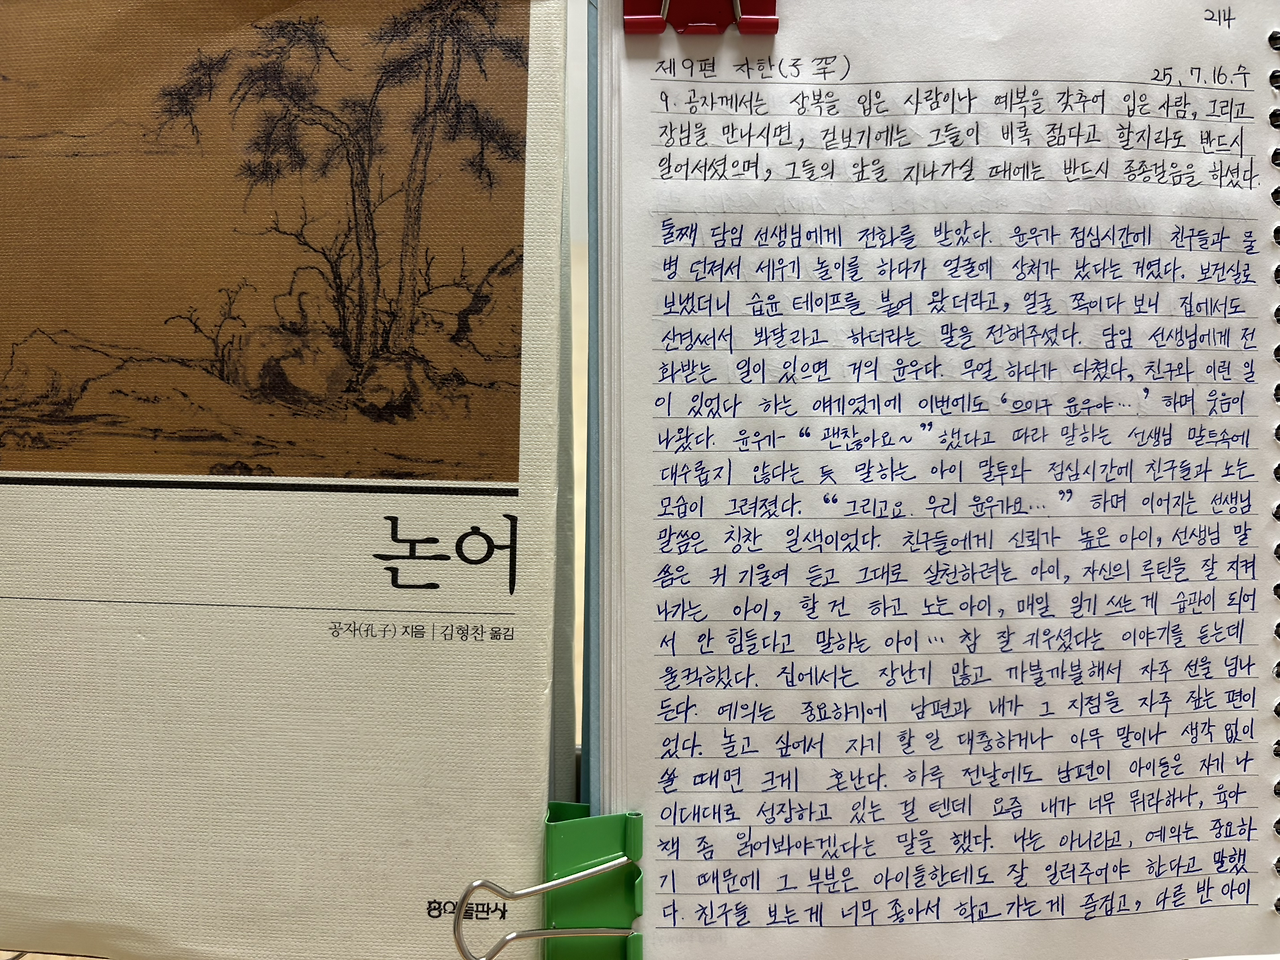 논어
공자(孔子) 지음 | 김형찬 옮김
홍익출판사
214
제9편 자한(子罕)
25. 7. 16. 수
9. 공자께서는 상복을 입은 사람이나 예복을 갖추어 입은 사람, 그리고
장님을 만나시면, 겉보기에는 그들이 비록 젊다고 할지라도 반드시
일어서셨으며, 그들의 앞을 지나가실 때에는 반드시 종종걸음을 하셨다.
둘째 담임 선생님에게 전화를 받았다. 윤우가 점심시간에 친구들과 물
병 던져서 세우기 놀이를 하다가 얼굴에 상처가 났다는 거였다. 보건실로
보냈더니 습윤 테이프를 붙여 왔더라고, 얼굴 쪽이다 보니 집에서도
신경써서 봐달라고 하더라는 말을 전해주셨다. 담임 선생님에게 전
화받는 일이 있으면 거의 윤우다. 무얼 하다가 다쳤다, 친구와 이런 일
이 있었다 하는 얘기였기에 이번에도 ‘으이구 윤우야…’ 하며 웃음이
나왔다. 윤우가 “괜찮아요~” 했다고 따라 말하는 선생님 말투속에
대수롭지 않다는 듯 말하는 아이 말투와 점심시간에 친구들과 노는
모습이 그려졌다. “그리고요. 우리 윤우가요…” 하며 이어지는 선생님
말씀은 칭찬 일색이었다. 친구들에게 신뢰가 높은 아이, 선생님 말
씀은 귀 기울여 듣고 그대로 실천하려는 아이, 자신의 루틴을 잘 지켜
나가는 아이, 할 건 하고 노는 아이, 매일 일기 쓰는 게 습관이 되어
서 안 힘들다고 말하는 아이… 참 잘 키우셨다는 이야기를 듣는데
울컥했다. 집에서는 장난기 많고 까불까불해서 자주 선을 넘나
든다. 예의는 중요하기에 남편과 내가 그 지점을 자주 짚는 편이
었다. 놀고 싶어서 자기 할 일 대충하거나 아무 말이나 생각 없이
쓸 때면 크게 혼난다. 하루 전날에도 남편이 아이들은 자기 나
이대대로 성장하고 있는 걸 텐데 요즘 내가 너무 뭐라하나, 육아
책 좀 읽어봐야겠다는 말을 했다. 나는 아니라고, 예의는 중요하
기 때문에 그 부분은 아이들한테도 잘 일러주어야 한다고 말했
다. 친구들 보는게 너무 좋아서 학교 가는게 즐겁고, 다른 반 아이